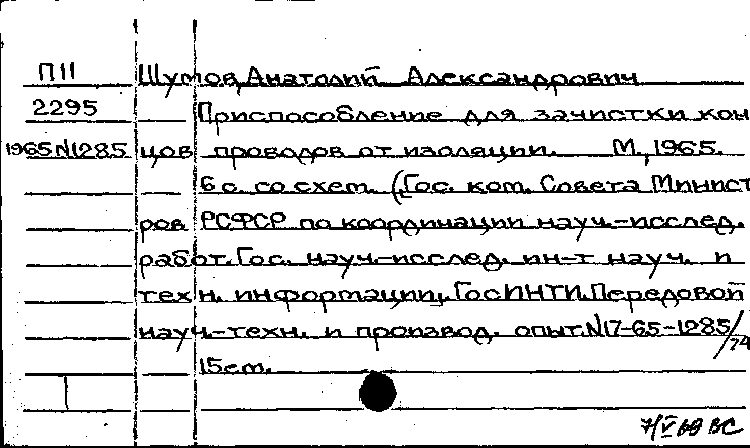 П11 Шумов, Анатолий Александрович
2295 Приспособление для зачистки кон
1965 N1285 цов проводов от изоляции. М., 1965.
6 с. со схем. (Гос. ком. Совета Минист
ров РСФСР по координации науч.-исслед.
работ. Гос. науч.-исслед. ин-т науч. и
техн. информации. ГосИНТИ. Передовой
науч.-техн. и производ. опыт. N17-65-1285/74
15 см.
7/V 69 ВС